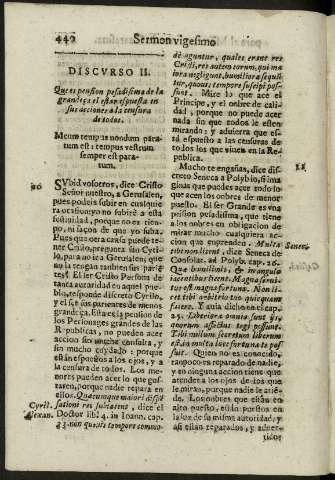 442
Sermon vigesimo
DISCVRSO II.
Que es pension pesadisima de la
grandeza el estar espuesta en
sus acciones à la censura
de todos.
Meum tempus nondum paratum
est: tempus vestrum
semper est paratum.
10
SVbid vosotros, dice Cristo
Señor nuestro, a Gerusalen,
que podeis subir en cualquier
ocasion yo no subiré a esta
festiuidad, porque no es tiempo,
ni saçon de que yo suba.
Pues que otra causa puede tener
Cristo, pregunta san Cirilo,
para no ira Gerusalen, que
no la tengan tambien sus parientes?
El ser Cristo Persona de
tanta autoridad en aquel pueblo,
responde
y el
grande
los Personages grandes de las
Republicas, no pueden acer
accion sin mucha consulta, y
sin mucho cuydado: porque
están espuestos a los ojos, y a
la censura de todos. Los menores
pueden acer lo que gustaren,
porque nadie repara en
ellos. Quacumque maiori
Cyril.
Alexan.
dice el
Doctor lib. 4. in Ioann. cap.
tempore commode
aguntur, quales erant res
Cristi, res autem eorum, qui
minora negligunt, humiliora
quouis tempore suscipi possunt.
Mire lo que ace el
Principe, y el onbre de calidad,
porque no puede acer
nada sin que todos le esten
mirando: y aduierta que está
espuesto a la censura de todos
los que viuen en la Republica.
11
Mucho te engañas, dice discreto
Seneca a Polybio, si imaginas
que puedes acer todo lo
que acen los onbres de menor
puesto. El ser Grande es vna
pension pesadisima, que tiene
a los onbres en obligacion de
mirar mucho cualquiera accion
que emprenden. Multa
Senec.
tibi non licent, dice Seneca de
Consolat. ad Polyb. cap. 26.
Que humillimis, & in angulo
iacentibus licent. Magna seruitus
est magna fortuna. Non licet
tibi arbitrio tuo quicquam
facere. Y auia dicho en el cap.
eorum affectus tegi possunt.
Tibi nullum secretum liberum
est, in multa luce fortuna te posuit.
Quien no es conocido,
tampoco es reparado de nadie,
y en ninguna accion que aga
ofenderá a los ojos de los que
le miran, porque nadie le atiende.
Los onbres que están en
alto puesto, están puestos en
la luz de su misma autoridad, y
asi están reparados, y aduertidos